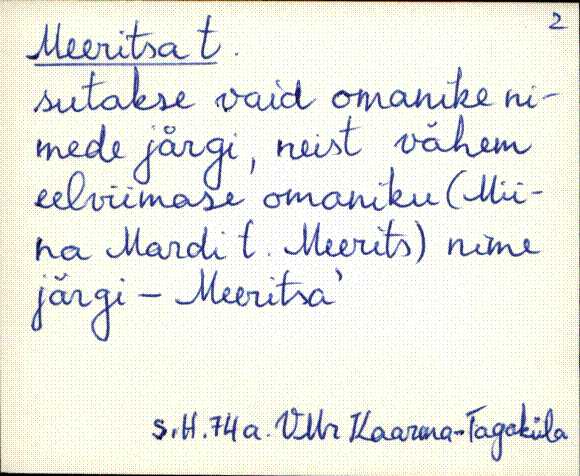 2
Meeritsa t.
sutakse vaid omanike ni-
mede järgi, neist vähem
eelviimase omaniku (Mii-
na Mardi t. Meerits) nime
järgi - Meeritsa'
S.H.74a. VMr Kaarma-Tagaküla